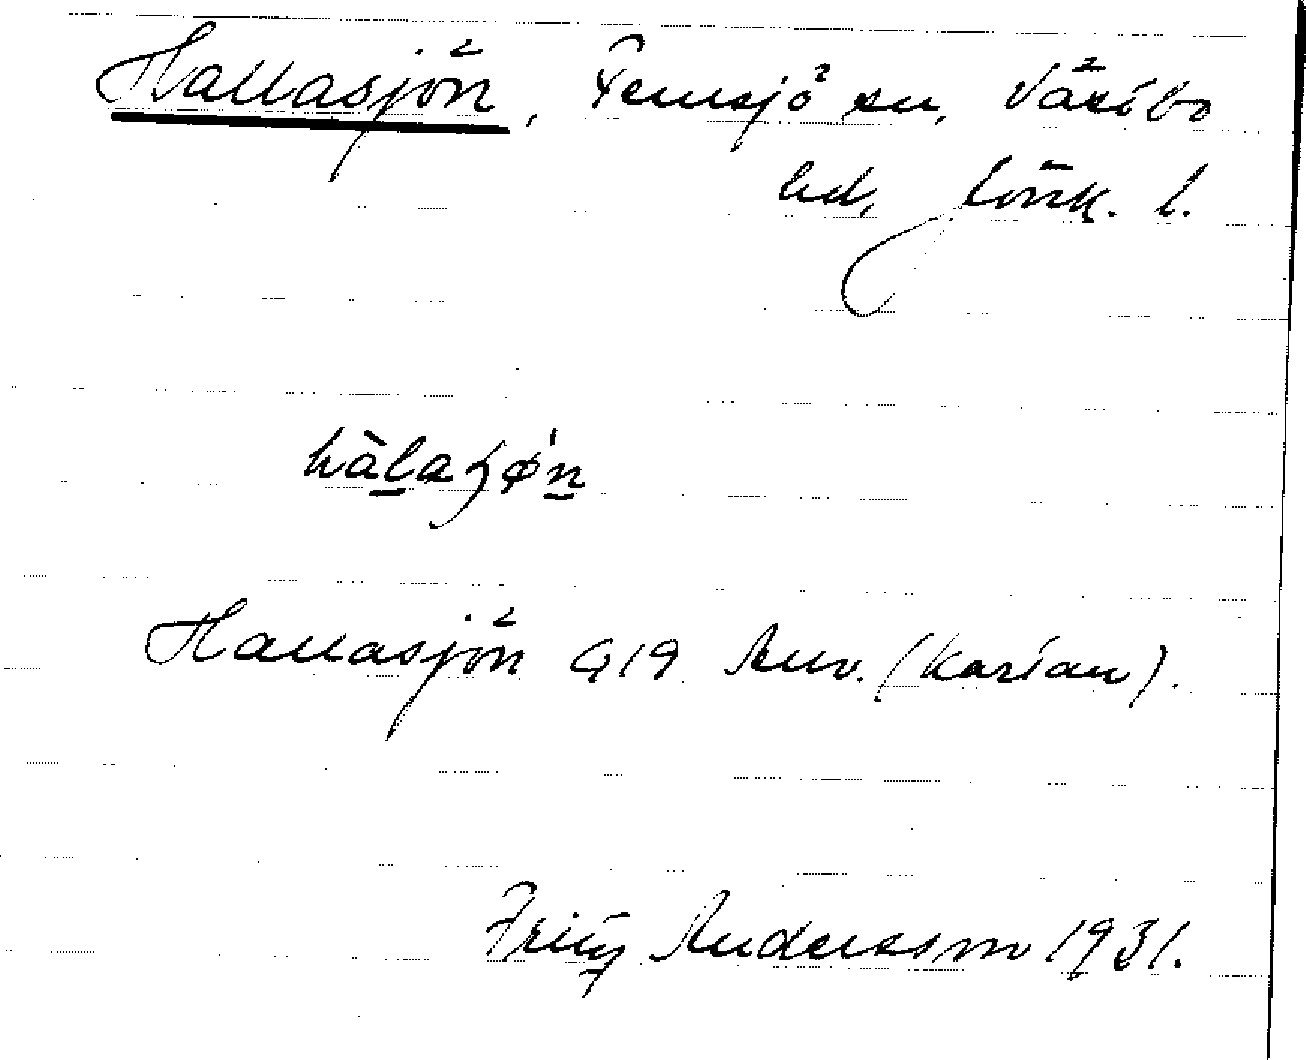 Hallasjön, Femsjö sn, Västbo
hd, Jönk. l.
hàlaʒø'n
Hallasjön G19 Anv. (Karlan).
Fritz Andersson 1931.